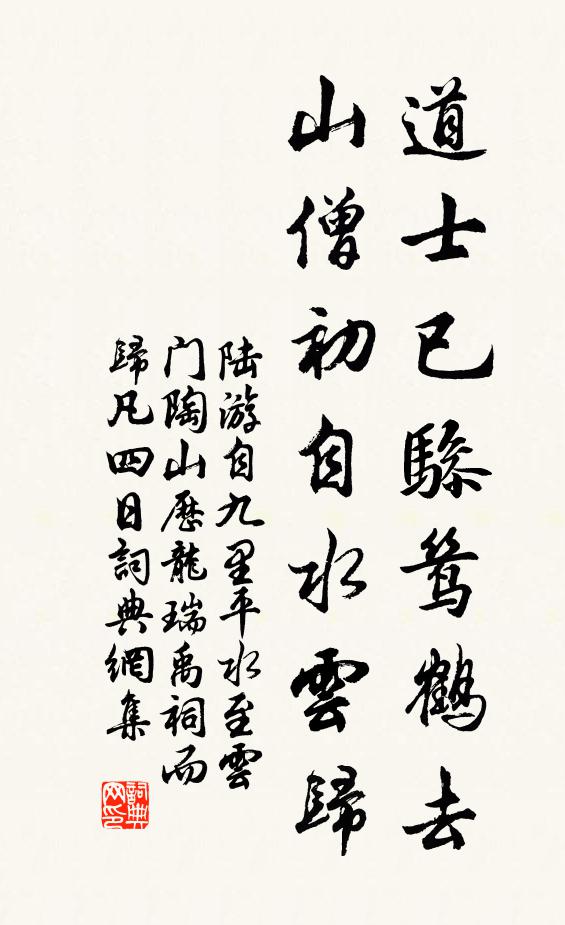 道士已驂鸞鶴去
山僧初自水雲歸
陆游自九里平水至雲
门陶山歷龍瑞禹祠而
歸凡四日詞典網集
詞典
网印